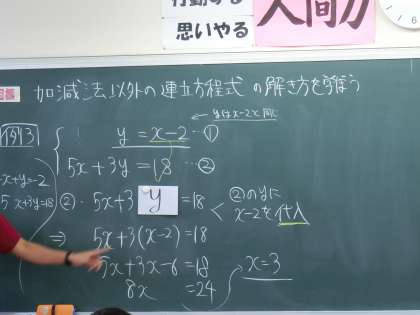 思いやる
人間力
加減法以外の連立方程式の解き方を学ぼう
例3
yはx-2と同じ
y = x-2 …①
5x + 3y = 18 …②
-x+y=-2
5x+3y=18
② 5x+3 y =18
②のyに
x-2を代入
⇒ 5x+3(x-2)=18
5x+3x-6=18
8x =24
x=3